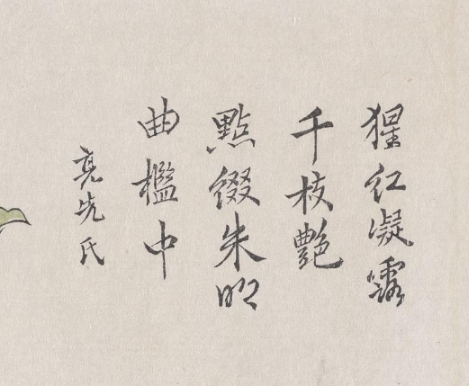 猩红凝露
千枝艷
點缀朱明
曲檻中
亮先氏